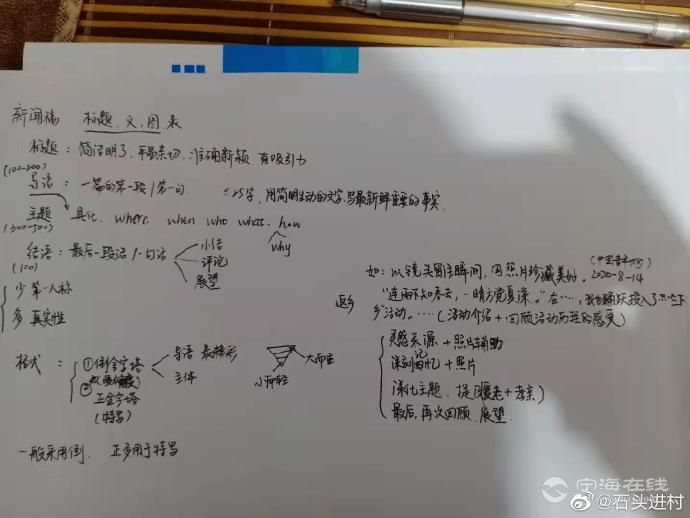 新闻稿 标题、文、图、表
标题：简洁明了，平易亲切，准确新颖 有吸引力
(100-300)
导语：一篇的第一段/第一句 ≤25字，用简明生动的文字,写最新鲜重要的事实
主题 具化、where. when who what. how
(300-500) why
结语：最后一段话/一句话 小结
评论
展望
(100)
少 第一人称
多 真实性
格式： ①倒金字塔 导语 最精彩
主体
②
正金字塔
(特写)
大而重
小而轻
一般采用倒、正多用于特写
如：以镜头留住瞬间，用照片珍藏美好。 2020-8-14
"连雨不知春去，一晴方觉夏深。"在……，我踊跃投入了
返乡活动。……(活动介绍+回顾活动历程的感受)
灵感来源+照片辅助
深刻回忆+照片
深化主题、 +孝亲)
最后，再次回顾、展望
宁海在线
@石头进村